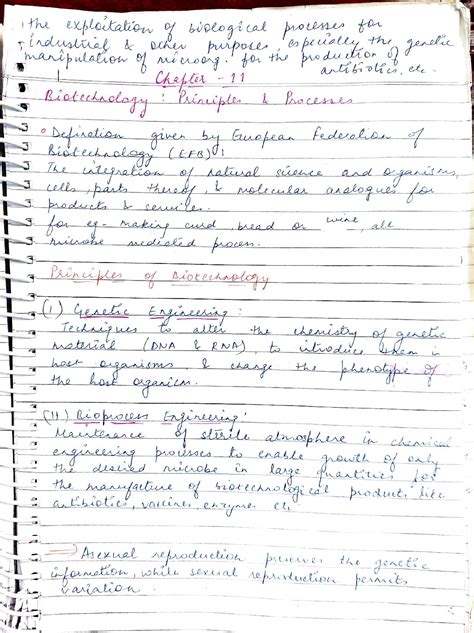 the exploitation of biological processes for
industrial & other purposes, especially the genetic
manipulation of microorg. for the production of
antibiotics, etc.
Chapter - 11
Biotechnology : Principles & Processes
Defination given by European Federation of
Biotechnology (EFB) :
The integration of natural science and organisms,
cells, parts thereof, & molecular analogues for
products & services.
for eg - making curd, bread or wine, all
microbe mediated process.
Principles of Biotechnology
(I) Genetic Engineering :
Techniques to alter the chemistry of genetic
material (DNA & RNA) to introduce them in
host organisms, & change the phenotype of
the host organism.
(II) Bioprocess Engineering :
Maintenance of sterile atmosphere in chemical
engineering processes to enable growth of only
the desired microbe in large quantities for
the manufacture of biotechnological products like
antibiotics, vaccines, enzymes etc
→ Asexual reproduction preserves the genetic
information, while sexual reproduction permits
variation.